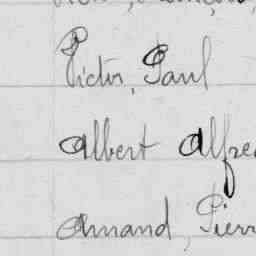 Victor, Paul
Albert Alfred
Armand, Pierr